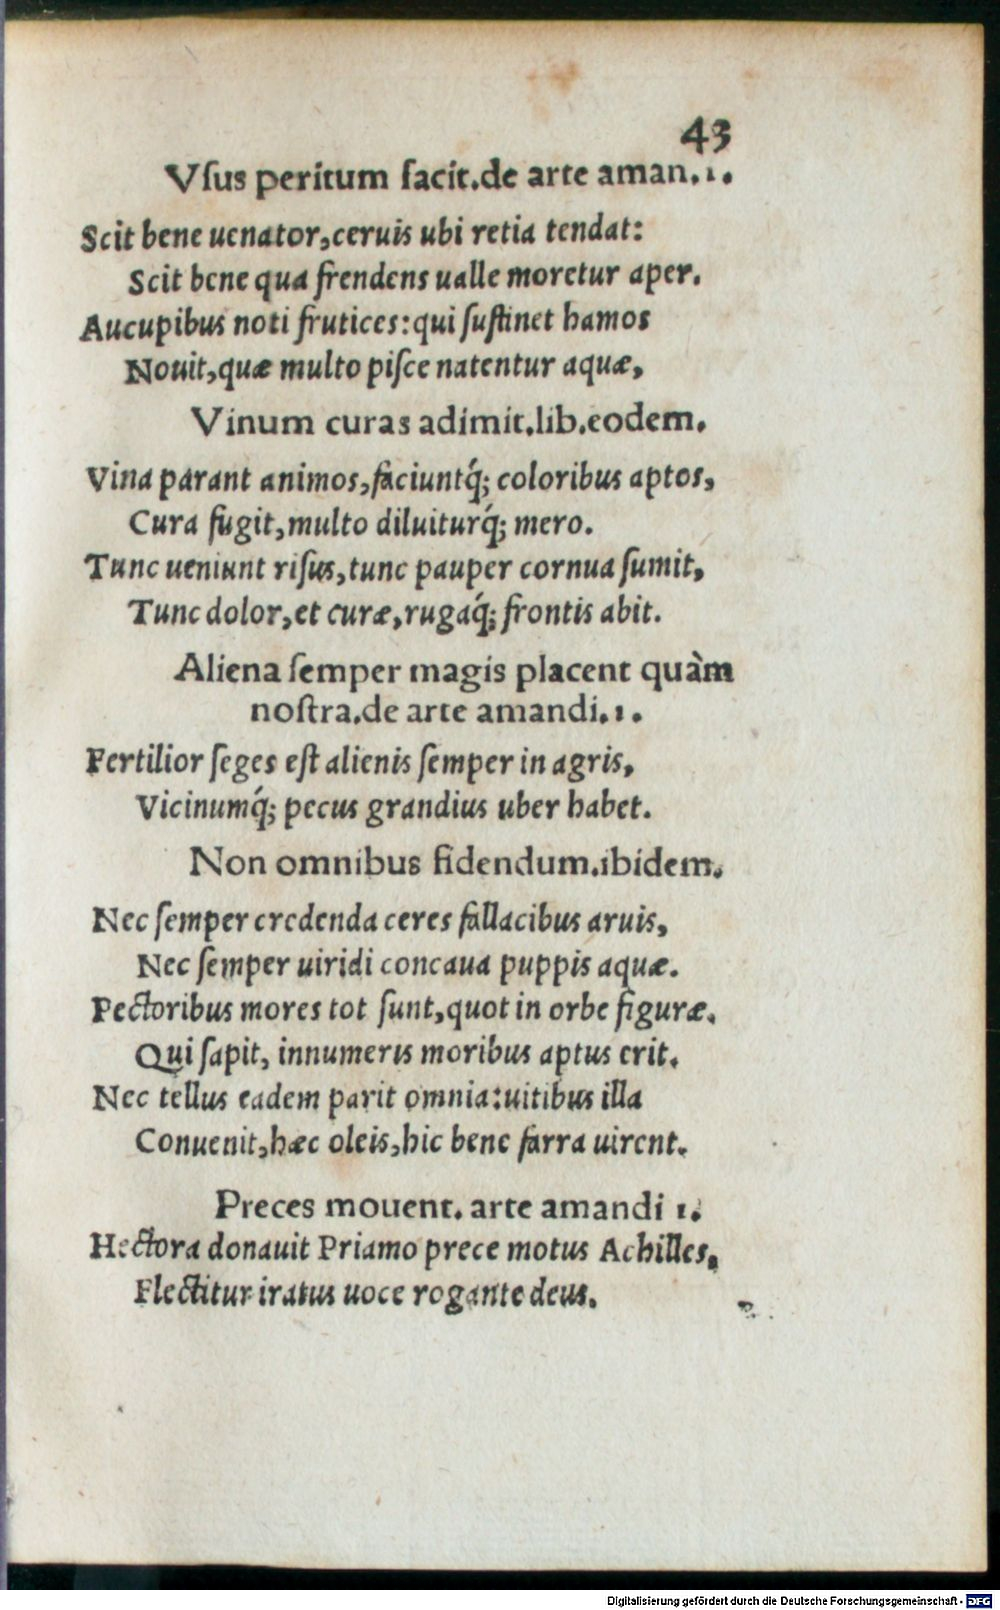 43
Vſus peritum facit.de arte aman.1.
Scit bene uenator,ceruis ubi retia tendat:
Scit bene qua frendens ualle moretur aper.
Aucupibus noti frutices:qui ſuſtinet hamos
Nouit,quæ multo piſce natentur aquæ,
Vinum curas adimit.lib.eodem.
Vina parant animos,faciuntq́; coloribus aptos,
Cura fugit,multo diluiturq́; mero.
Tunc ueniunt riſus,tunc pauper cornua ſumit,
Tunc dolor,et curæ,rugaq́; frontis abit.
Aliena ſemper magis placent quàm
noſtra.de arte amandi.1.
Fertilior ſeges eſt alienis ſemper in agris,
Vicinumq́; pecus grandius uber habet.
Non omnibus fidendum.ibidem.
Nec ſemper credenda ceres fallacibus aruis,
Nec ſemper uiridi concaua puppis aquæ.
Pectoribus mores tot ſunt,quot in orbe figuræ.
Qui ſapit, innumeris moribus aptus erit.
Nec tellus eadem parit omnia:uitibus illa
Conuenit,hæc oleis,hic bene farra uirent.
Preces mouent. arte amandi 1.
Hectora donauit Priamo prece motus Achilles,
Flectitur iratus uoce rogante deus.
Digitalisierung gefördert durch die Deutsche Forschungsgemeinschaft - DFG